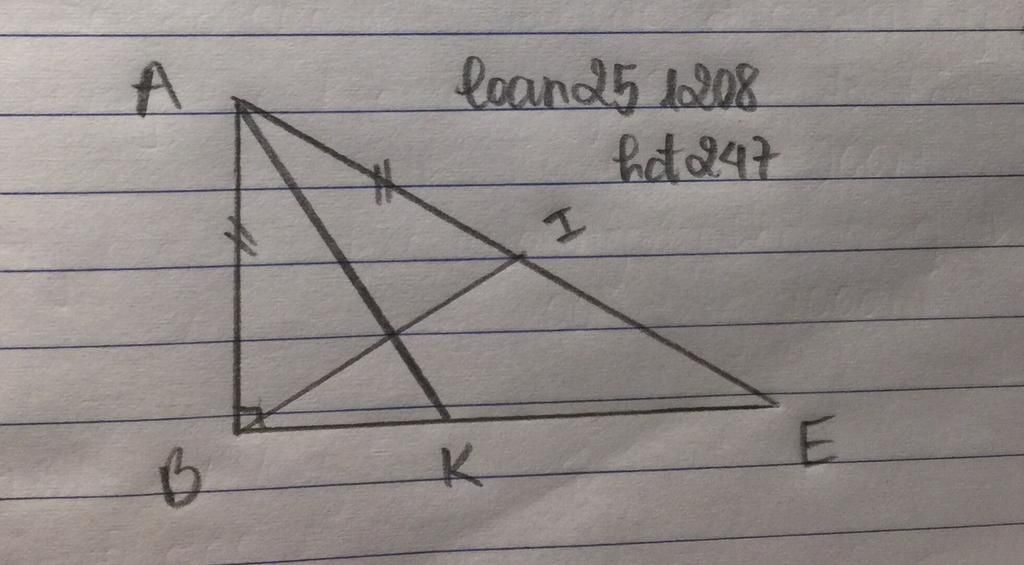 A
loan25 1208
hdt247
I
B
K
E